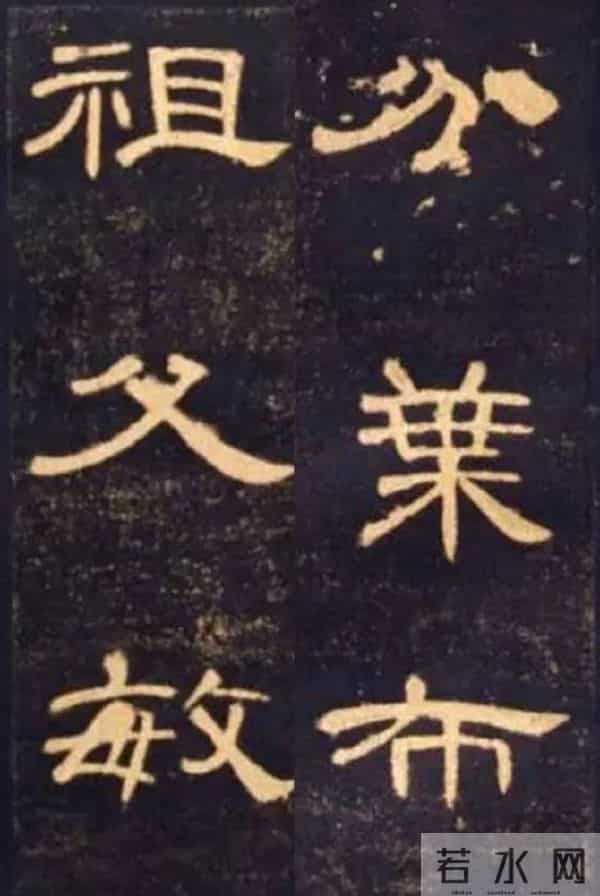 分葉布
祖父敏
若水网